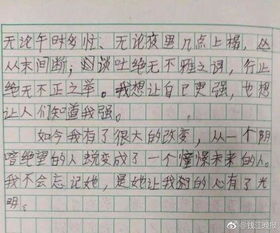 无论午时多忙、无论夜里几点上榻，丛
从未间断；谈吐绝无不雅之词，行止
绝无不正之举。我想让自己更强，也想
让人们知道我强。
如今我有了很大的改变，从一个阴
暗绝望的人蜕变成了一个憧憬未来的人。
我不会忘记她，是她让我的心有了光
明。
@钱江晚报